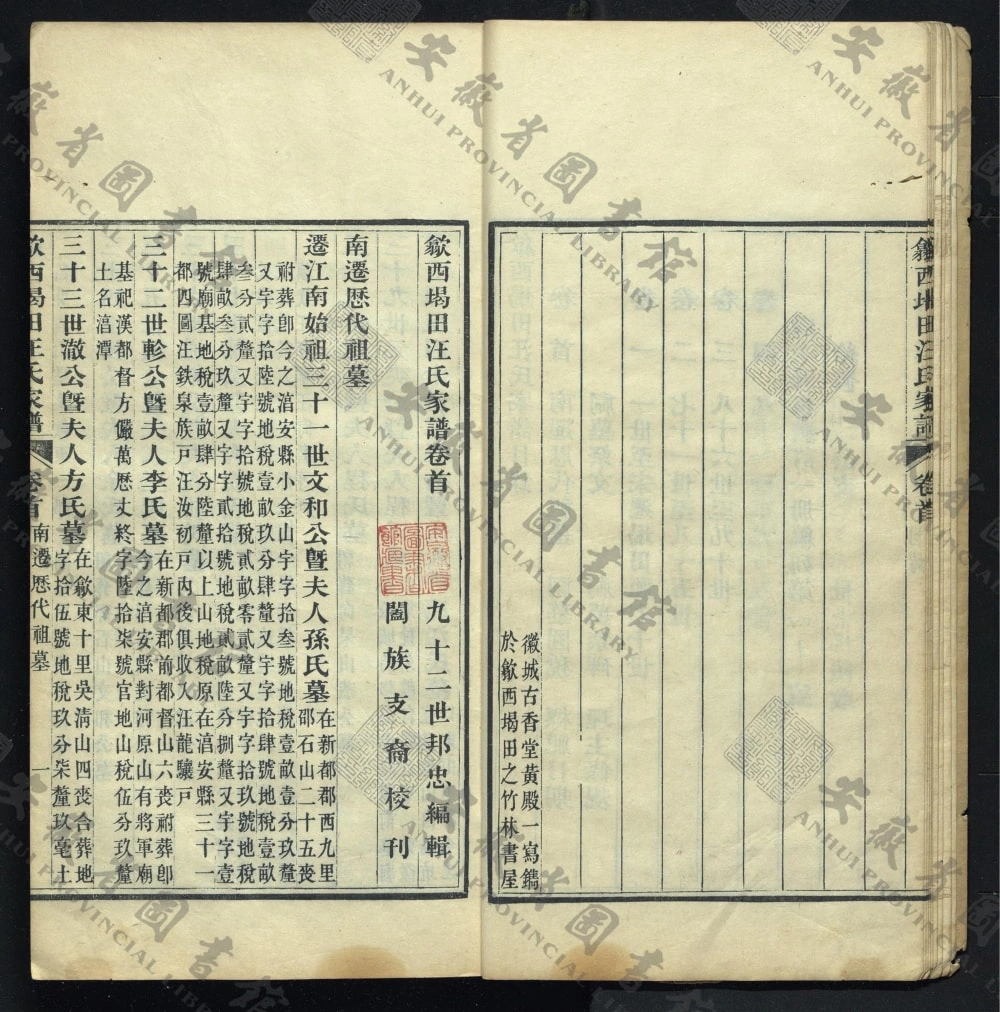 歙西堨田汪氏家譜 卷首
徽城古香堂黃殿一寫鐫
於歙西堨田之竹林書屋
歙西堨田汪氏家譜卷首
九十三世邦忠編輯
闔族支裔校刊
南遷歷代祖墓
遷江南始祖三十一世文和公曁夫人孫氏墓
在新都郡西九里
邵石山二十五喪
祔葬卽今之湻安縣小金山宇字拾叁號地稅壹畝壹分玖釐
又宇字拾陸號地稅壹畝玖分肆釐又宇字拾肆號地稅壹畝
叁分貳釐又宇字拾號地稅貳畝零貳釐又宇字拾玖號地稅
肆畝叁分玖釐又宇字貳拾號地稅貳畝陸分捌釐又宇字壹
號廟基地稅壹畝肆分陸釐以上山地稅原在湻安縣三十一
都四圖汪鉄泉族戶汪汝初戶内後俱收入汪龍驤戶
三十五世軫公曁夫人李氏墓
在新都郡前都督山六喪祔葬卽
今之湻安縣對河原山有將軍廟
基祀漢都督方儼萬歷丈終字陸拾柒號官地山稅伍分玖釐
土名湻潭
三十三世澈公曁夫人方氏墓
在歙東十里吳清山四喪合葬地
字拾伍號地稅玖分柒釐玖毫土
歙西堨田汪氏家譜 卷首 南遷歷代祖墓 一
安徽省圖書館
ANHUI PROVINCIAL LIBRARY